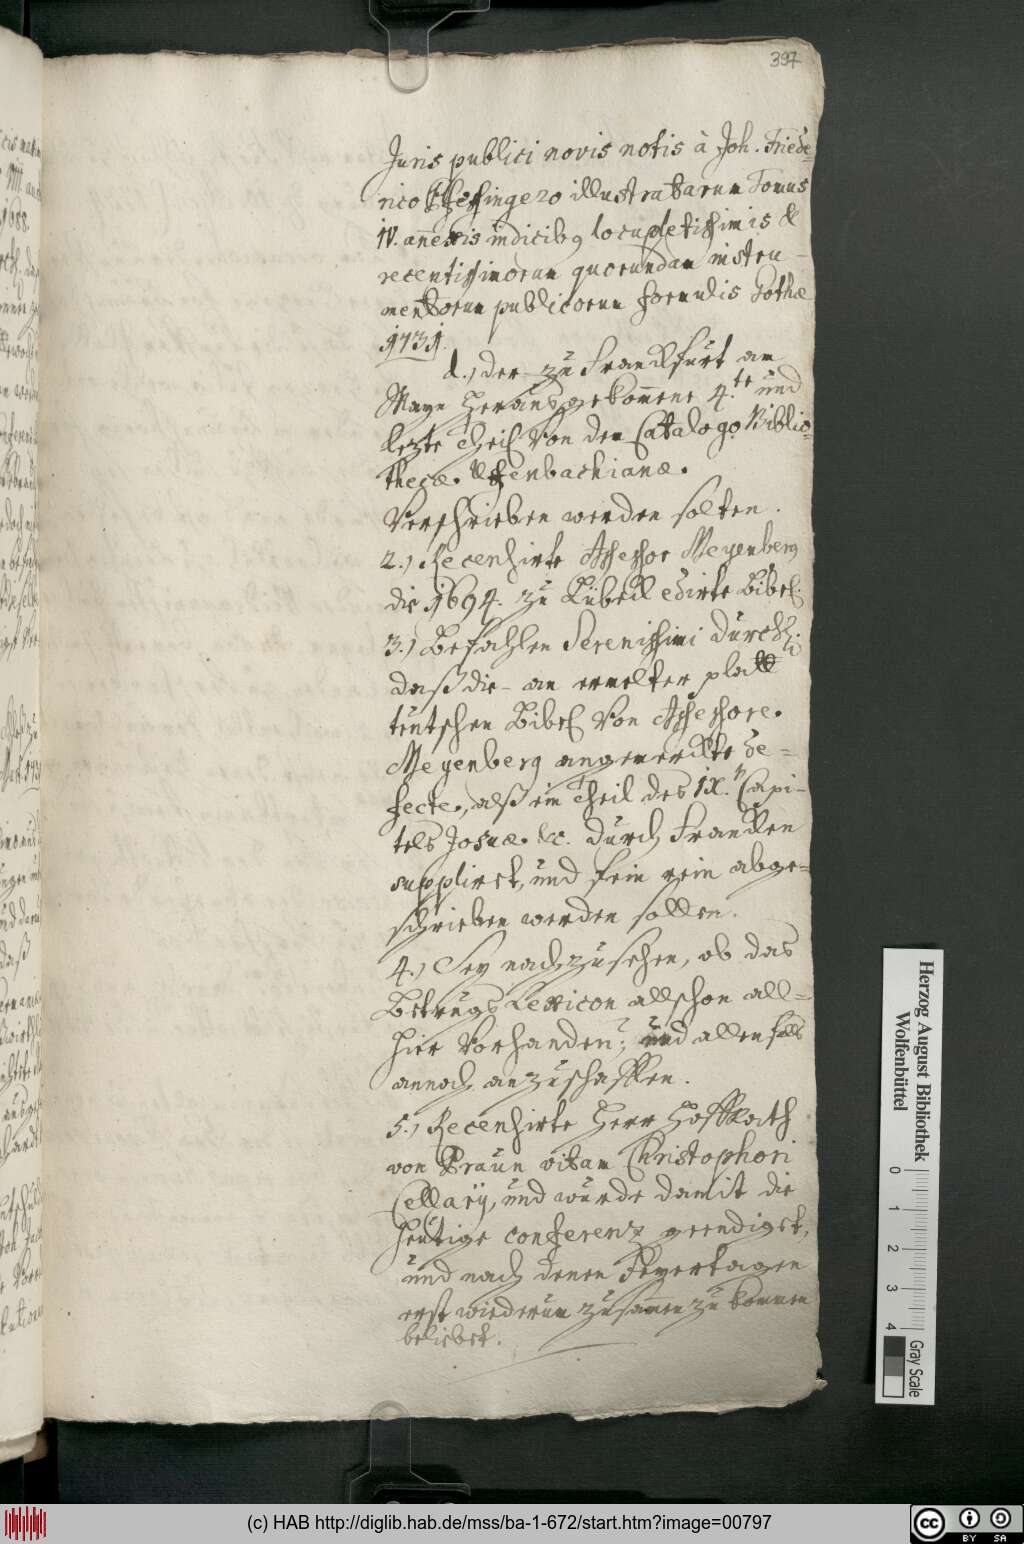 397
Juris publici novis notis à Joh. Friede-
rico Pfeffingero illustratarum Tomus
IV. añexis indicibq locupletissimis &
recentissimorum quorundam instru-
mentorum publicorum formulis Gothæ
1731.
d.) der zu Franckfurt am
Mayn herausgekom̄ene 4.te und
lezte Theil von dem Catalogo Biblio-
thecæ Uffenbachianæ.
Verschrieben werden solten.
2.) Recensirte Assessor Meyenberg
die 1694. zu Lübeck edirte Bibel.
3.) Befahlen Serenissimi Durchl.
daß die an ermelter platt
teutschen Bibel von Assessore
Meyenberg angemerckte De-
fecte, alß ein Theil des IX.n Capi-
tels Josuæ &c. durch Francken
suppliret, und fein rein abge-
schrieben werden sollen.
4.) Sey nachzusehen, ob das
Betrugs Lexicon allschon all-
hier vorhanden; und allenfalls
annoch anzuschaffen.
5.) Recensirte Herr Hoffrath
von Praun vitam Christophori
Cellarÿ, und wurde damit die
heutige conferenz geendiget,
und nach denen Feyertagen
erst wiederum zusam̄en zu kommen
beliebet.
Herzog August Bibliothek
Wolfenbüttel
0 1 2 3 4
Gray Scale
(c) HAB http://diglib.hab.de/mss/ba-1-672/start.htm?image=00797
cc BY SA